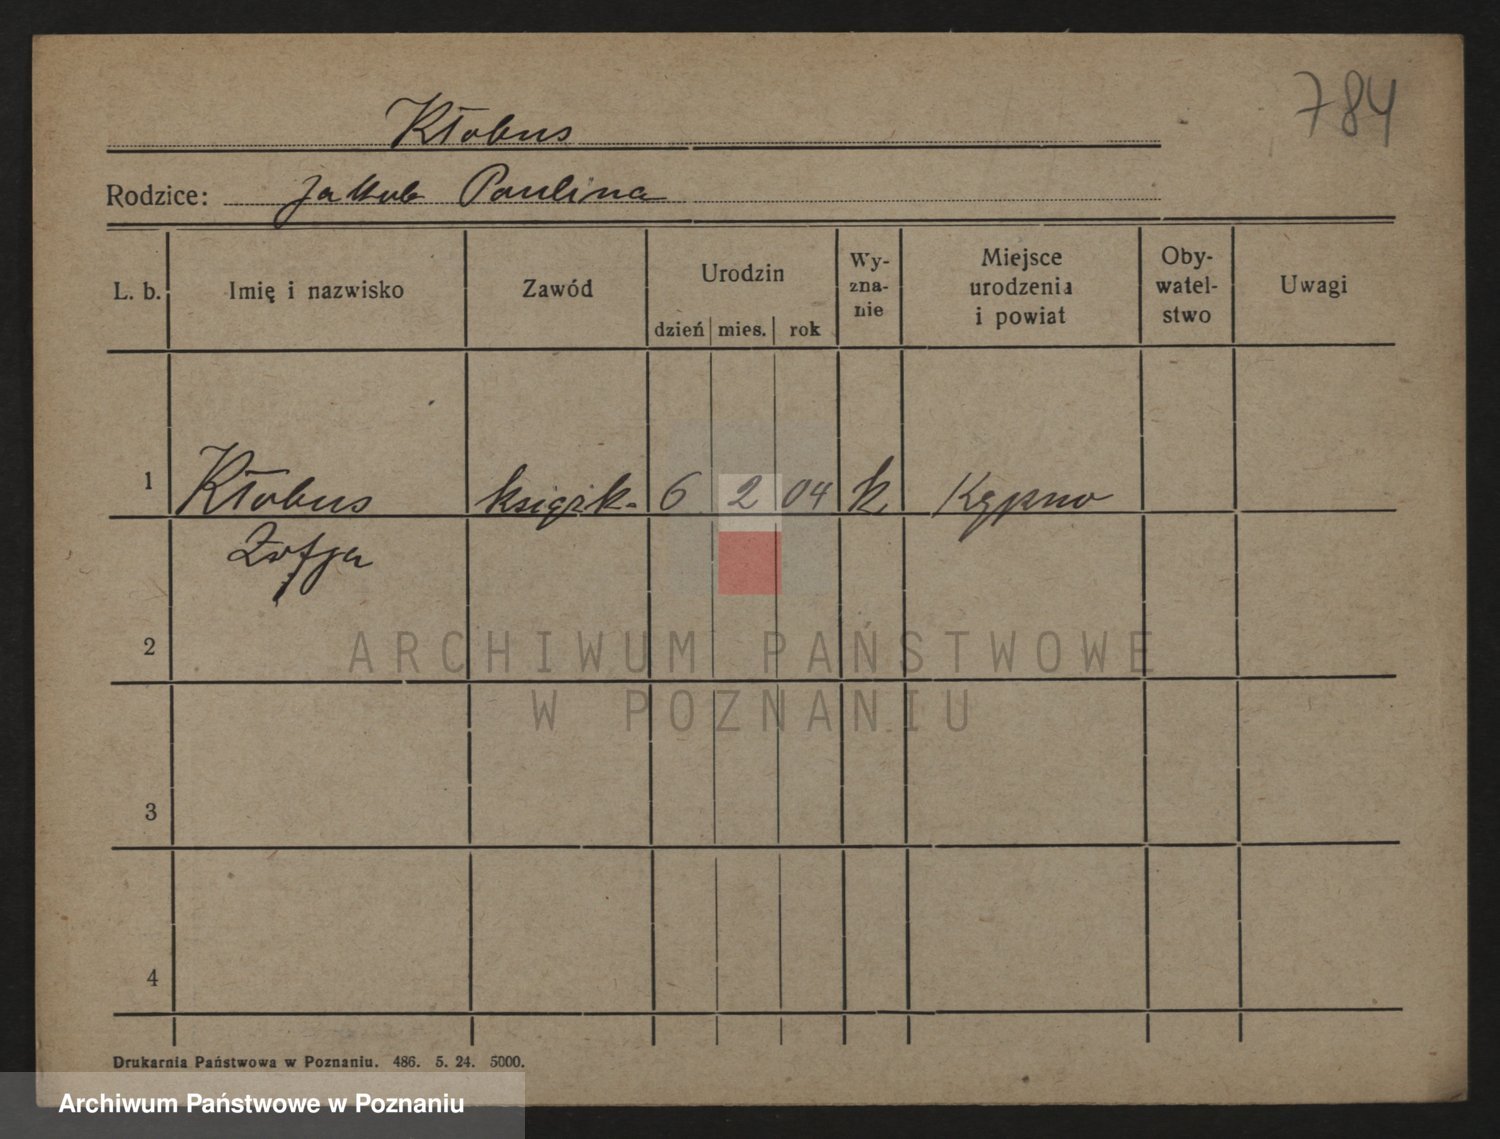 784
Kłobus
Rodzice: Jakub Paulina
L. b. Imię i nazwisko Zawód Urodzin dzień mies. rok Wy-zna-nie Miejsce urodzenia i powiat Oby-watel-stwo Uwagi
1 Kłobus księżk. 6 2 04 k. Kępno
Zofja
2
ARCHIWUM PAŃSTWOWE
W POZNANIU
3
4
Drukarnia Państwowa w Poznaniu. 486. 5. 24. 5000.
Archiwum Państwowe w Poznaniu